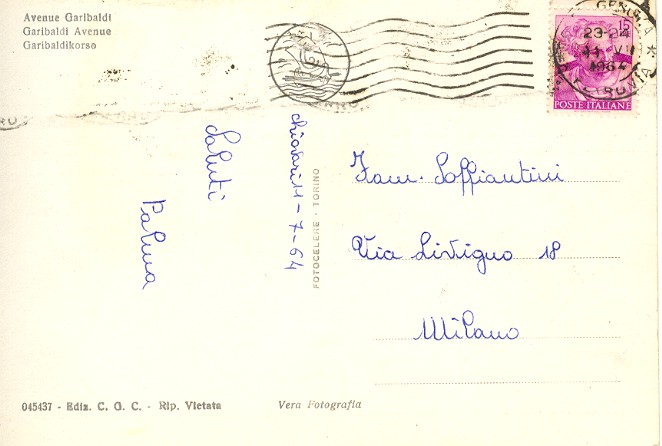 Avenue Garibaldi
Garibaldi Avenue
Garibaldikorso
15
GENOVA
23-24
VII
1964
FERROVIA
POSTE ITALIANE
Chiavari 11-7-64
Saluti
Palma
FOTOCELERE - TORINO
Fam. Soffiantini
Via Livigno 18
Milano
045437 - Ediz. C. G. C. - Rip. Vietata
Vera Fotografia